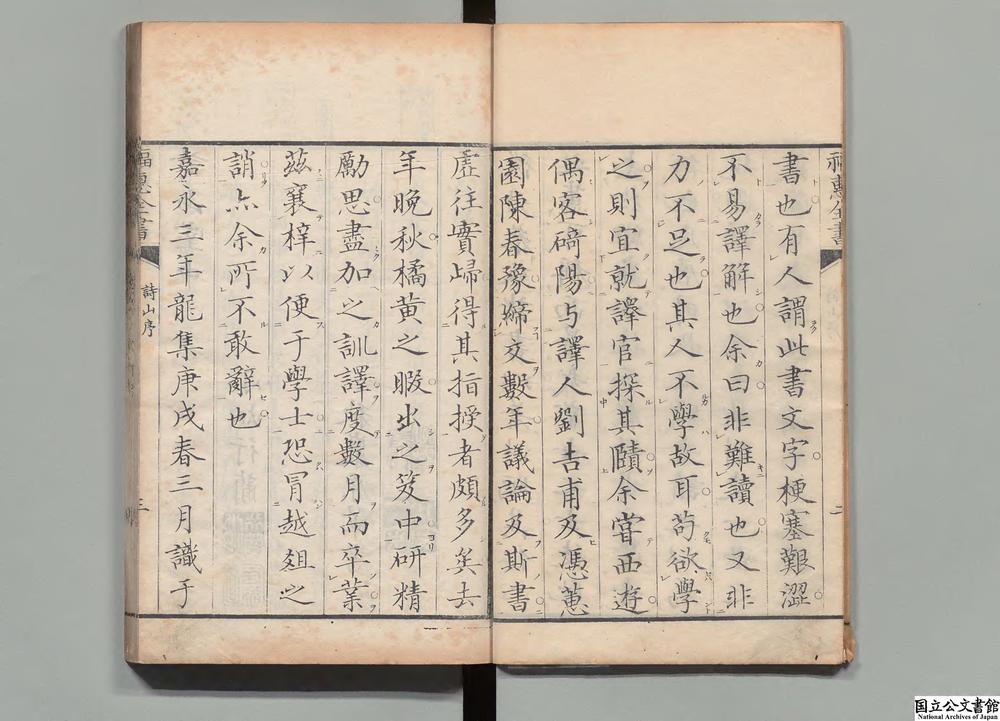 書也有人謂此書文字梗塞艱澀
不易譯解也余曰非難讀也又非
力不足也其人不學故耳苟欲學
之則宜就譯官探其賾余嘗西遊
偶客碕陽与譯人劉吉甫及馮蕙
園陳春豫締交數年議論及斯書
虚往實歸得其指授者頗多矣去
年晚秋橘黄之暇出之笈中研精
勵思盡加之訓譯度數月而卒業
茲襄梓以便于學士恐冒越俎之
誚亦余所不敢辭也
嘉永三年龍集庚戌春三月識于
福惠全書
詩山序
三
福惠全書
二
国立公文書館
National Archives of Japan